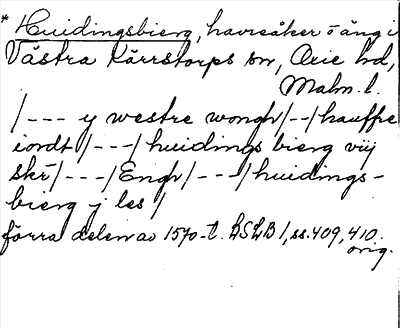 * Huidingsbierg, havreåker o äng i
Västra Kärrstorps sn, Oxie hd,
Malm. l.
/--- y westre wongh/--/hauffre
iordt/---/huidings bierg viij
skr/---/Engh/---/huidings-
bierg j les/
förra delen av 1570-t. LSLB 1, ss. 409, 410.
orig.